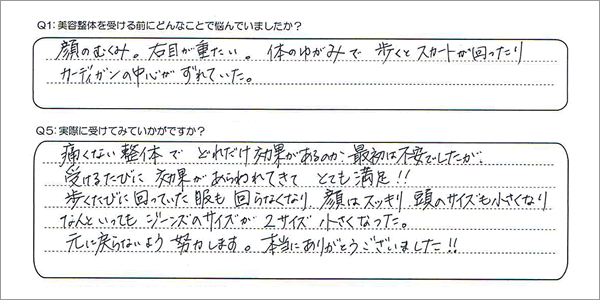 Q1:美容整体を受ける前にどんなことで悩んでいましたか?
顔のむくみ。右目が重たい。体のゆがみで歩くとスカートが回ったり
カーディガンの中心がずれていた。
Q5:実際に受けてみていかがですか?
痛くない整体でどれだけ効果があるのか最初は不安でしたが、
受けるたびに効果があらわれてきてとても満足!!
歩くたびに回っていた服も回らなくなり顔はスッキリ頭のサイズも小さくなり
なんといってもジーンズのサイズが2サイズ小さくなった。
元に戻らないよう努力します。本当にありがとうございました!!